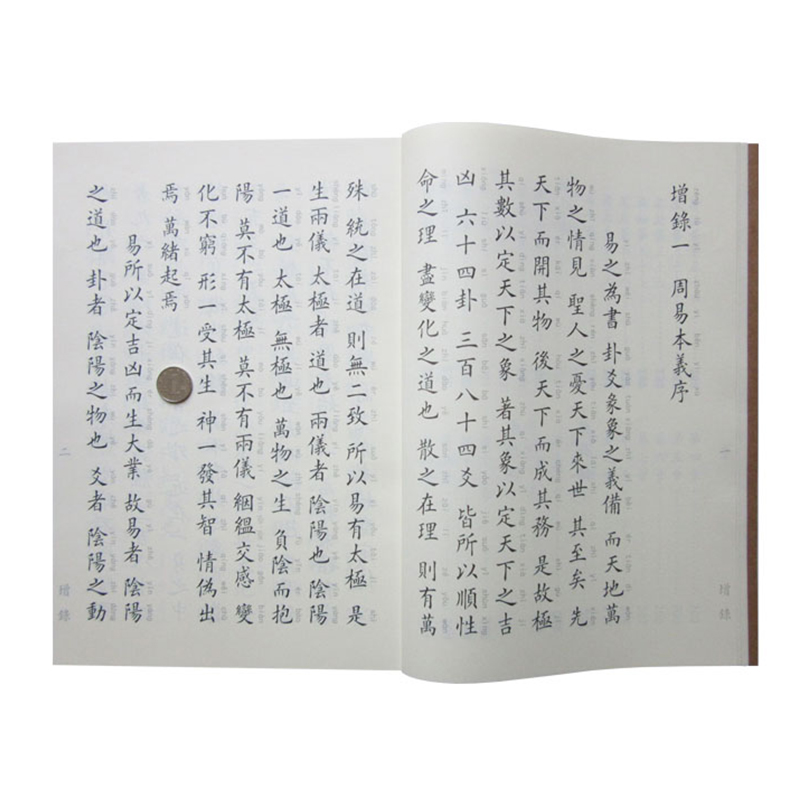 增錄一 周易本義序
易之為書 卦爻彖象之義備 而天地萬
物之情見 聖人之憂天下來世 其至矣 先
天下而開其物 後天下而成其務 是故極
其數以定天下之象 著其象以定天下之吉
凶 六十四卦 三百八十四爻 皆所以順性
命之理 盡變化之道也 散之在理 則有萬
一
增錄
殊 統之在道 則無二致 所以易有太極 是
生兩儀 太極者 道也 兩儀者 陰陽也 陰陽
一道也 太極 無極也 萬物之生 負陰而抱
陽 莫不有太極 莫不有兩儀 絪縕交感 變
化不窮 形一受其生 神一發其智 情偽出
焉 萬緒起焉
易所以定吉凶而生大業 故易者 陰陽
之道也 卦者 陰陽之物也 爻者 陰陽之動
二
增錄